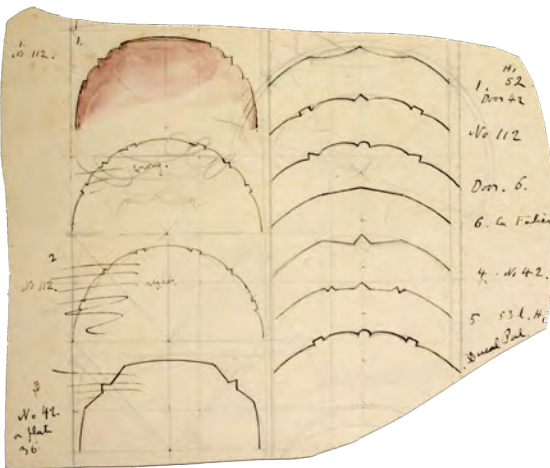 1.
No 112.
1.
wrong.
2
No 112.
3
No 42.
or flat
36.
H.
52
1.
Door 42
No 112
Door. 6.
6. Ca Falier
4. No 42.
5 53 l. H.
Ducal Pal.